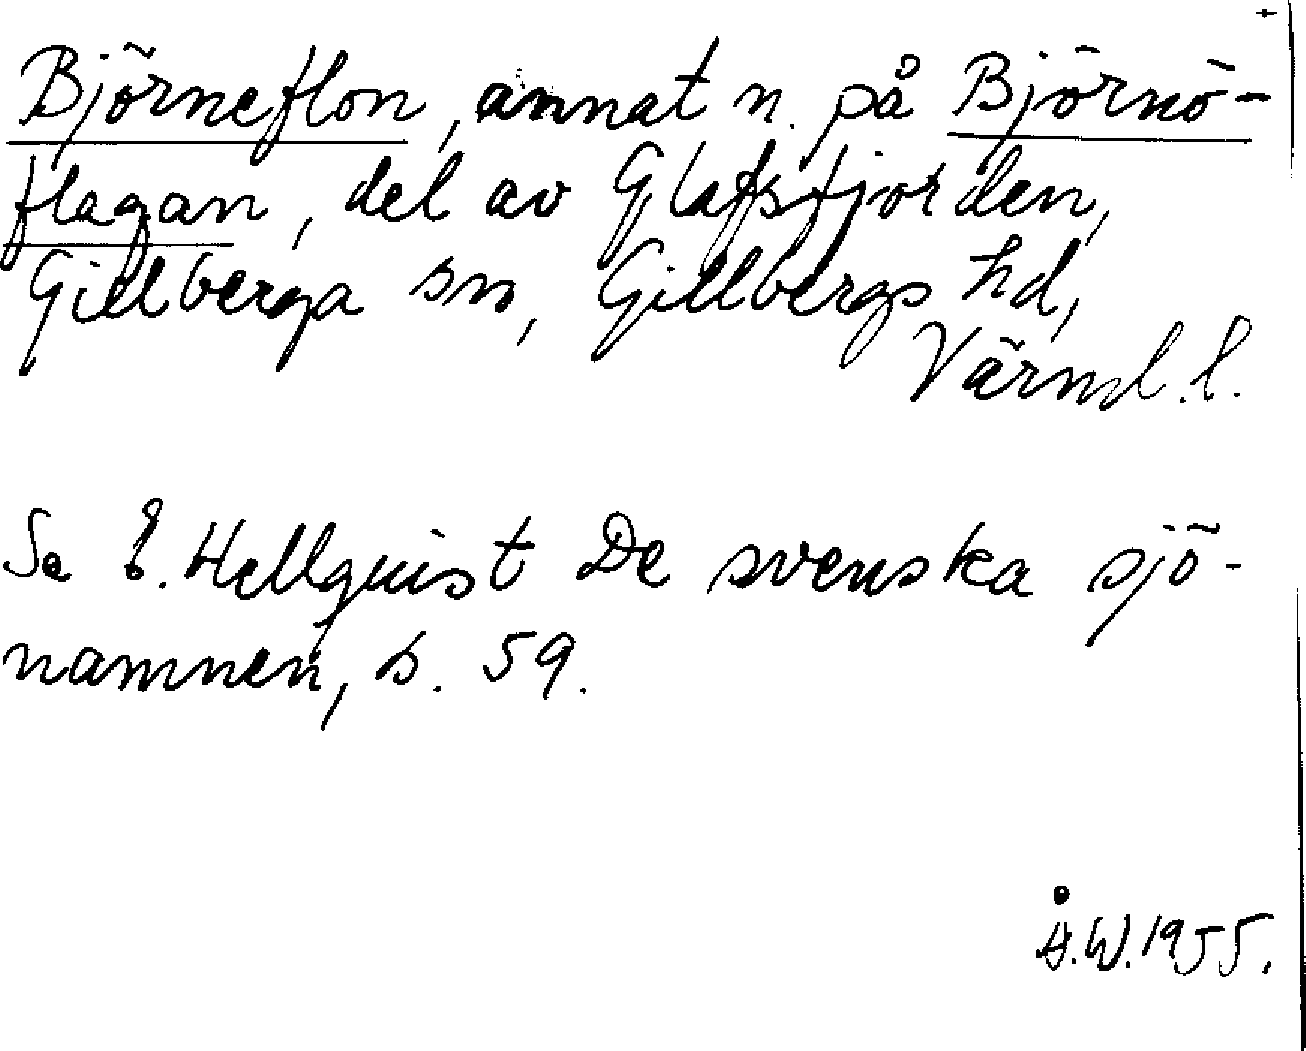 Björneflon, annat n. på Björnö-
flagan, del av Glafsfjorden,
Gillberga sn, Gillbergs hd,
Värml. l.
Se E. Hellquist De svenska sjö-
namnen, s. 59.
Å.W. 1955.